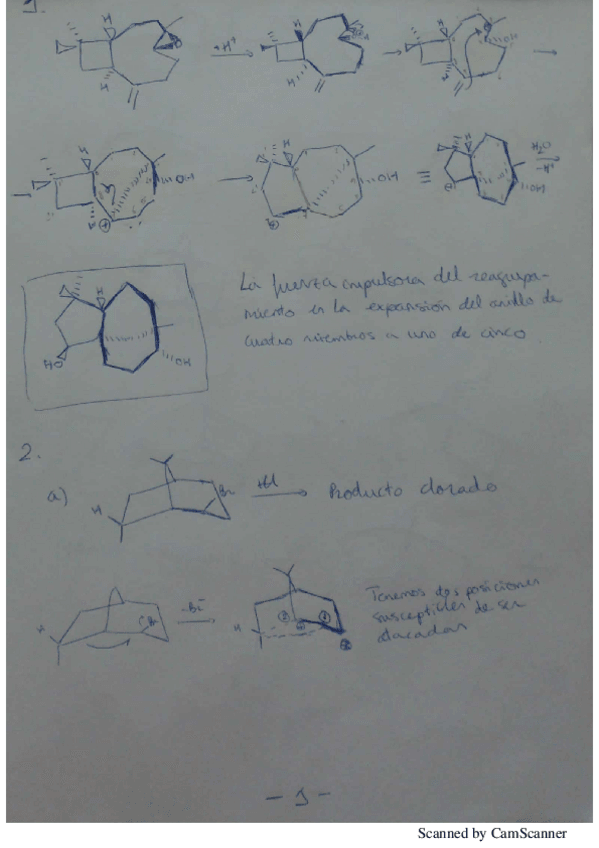 1.
H
H
+H⁺
H
H
H
OH
H
H
OH
H
OH
≡
H
OH
H₂O
-H⁺
H
HO
OH
La fuerza impulsora del reagrupa-
miento es la expansión del anillo de
cuatro miembros a uno de cinco
2.
a)
H
Br
Producto clorado
H
Br
-Br⁻
H
Tenemos dos posiciones
susceptibles de ser
atacadas
- 1 -
Scanned by CamScanner